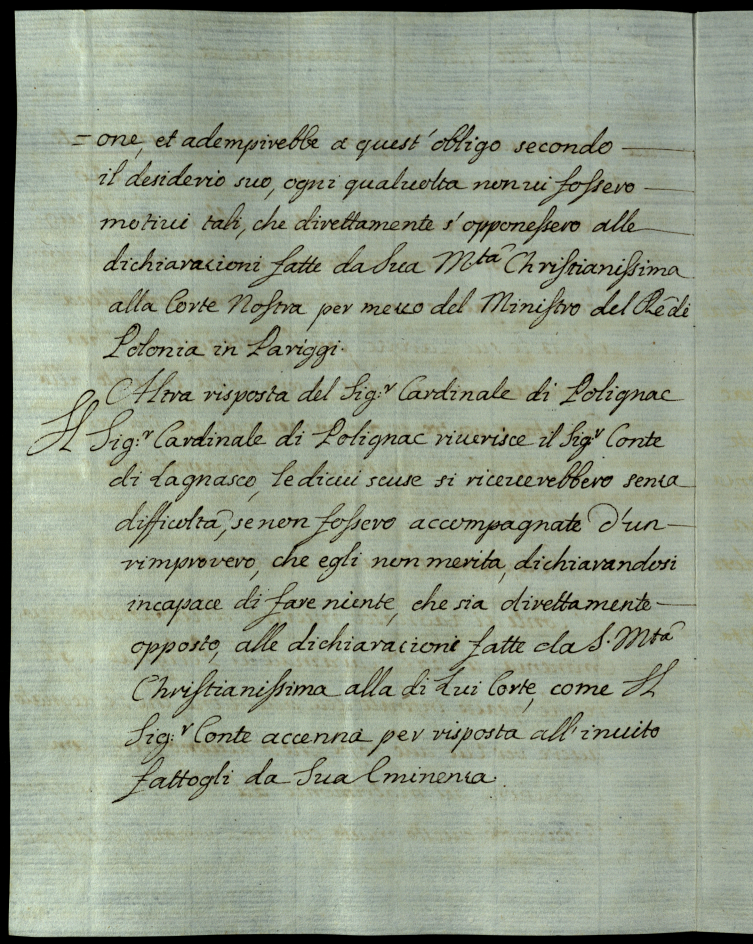 =one, et adempirebbe a quest'obligo secondo
il desiderio suo, ogni qualuolta non ui fossero
motiui tali, che direttamente s'opponessero alle
dichiarazioni fatte da Sua Mtà Christianissima
alla Corte Nostra per mezzo del Ministro del Rè di
Polonia in Pariggi.
Altra risposta del Sig:r Cardinale di Polignac
Il Sig:r Cardinale di Polignac riuerisce il Sig.r Conte
di Lagnasco, le dicui scuse si riceuerebbero senza
difficoltà, se non fossero accompagnate d'un
rimprovero, che egli non merita, dichiarandosi
incapace di fare niente, che sia direttamente
opposto, alle dichiarazioni fatte da S. Mtà
Christianissima alla di Lui Corte, come Il
Sig:r Conte accenna per risposta all'inuito
fattogli da Sua Eminenza.